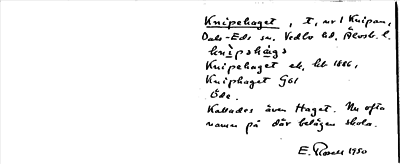 Knipehaget, t, ur 1 Knipan,
Dals-Eds sn, Vedbo hd, Älvsb. l.
knìpshágs
Knipehaget ek, kb 1686,
Kniphaget GÖ1
Öde.
Kallades även Haget. Nu ofta
namn på där belägen skola.
E. Rosell 1950